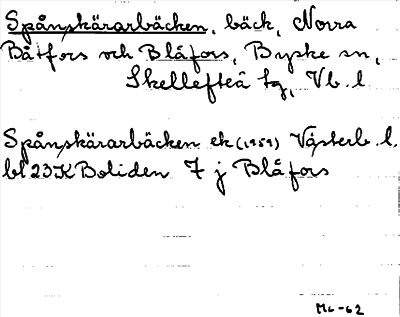 Spånskärarbäcken, bäck, Norra
Båtfors och Blåfors, Byske sn,
Skellefteå tg, Vb. l.
Spånskärarbäcken ek (1959) Västerb. l.
bl 23K Boliden 7 j Blåfors
M6-62